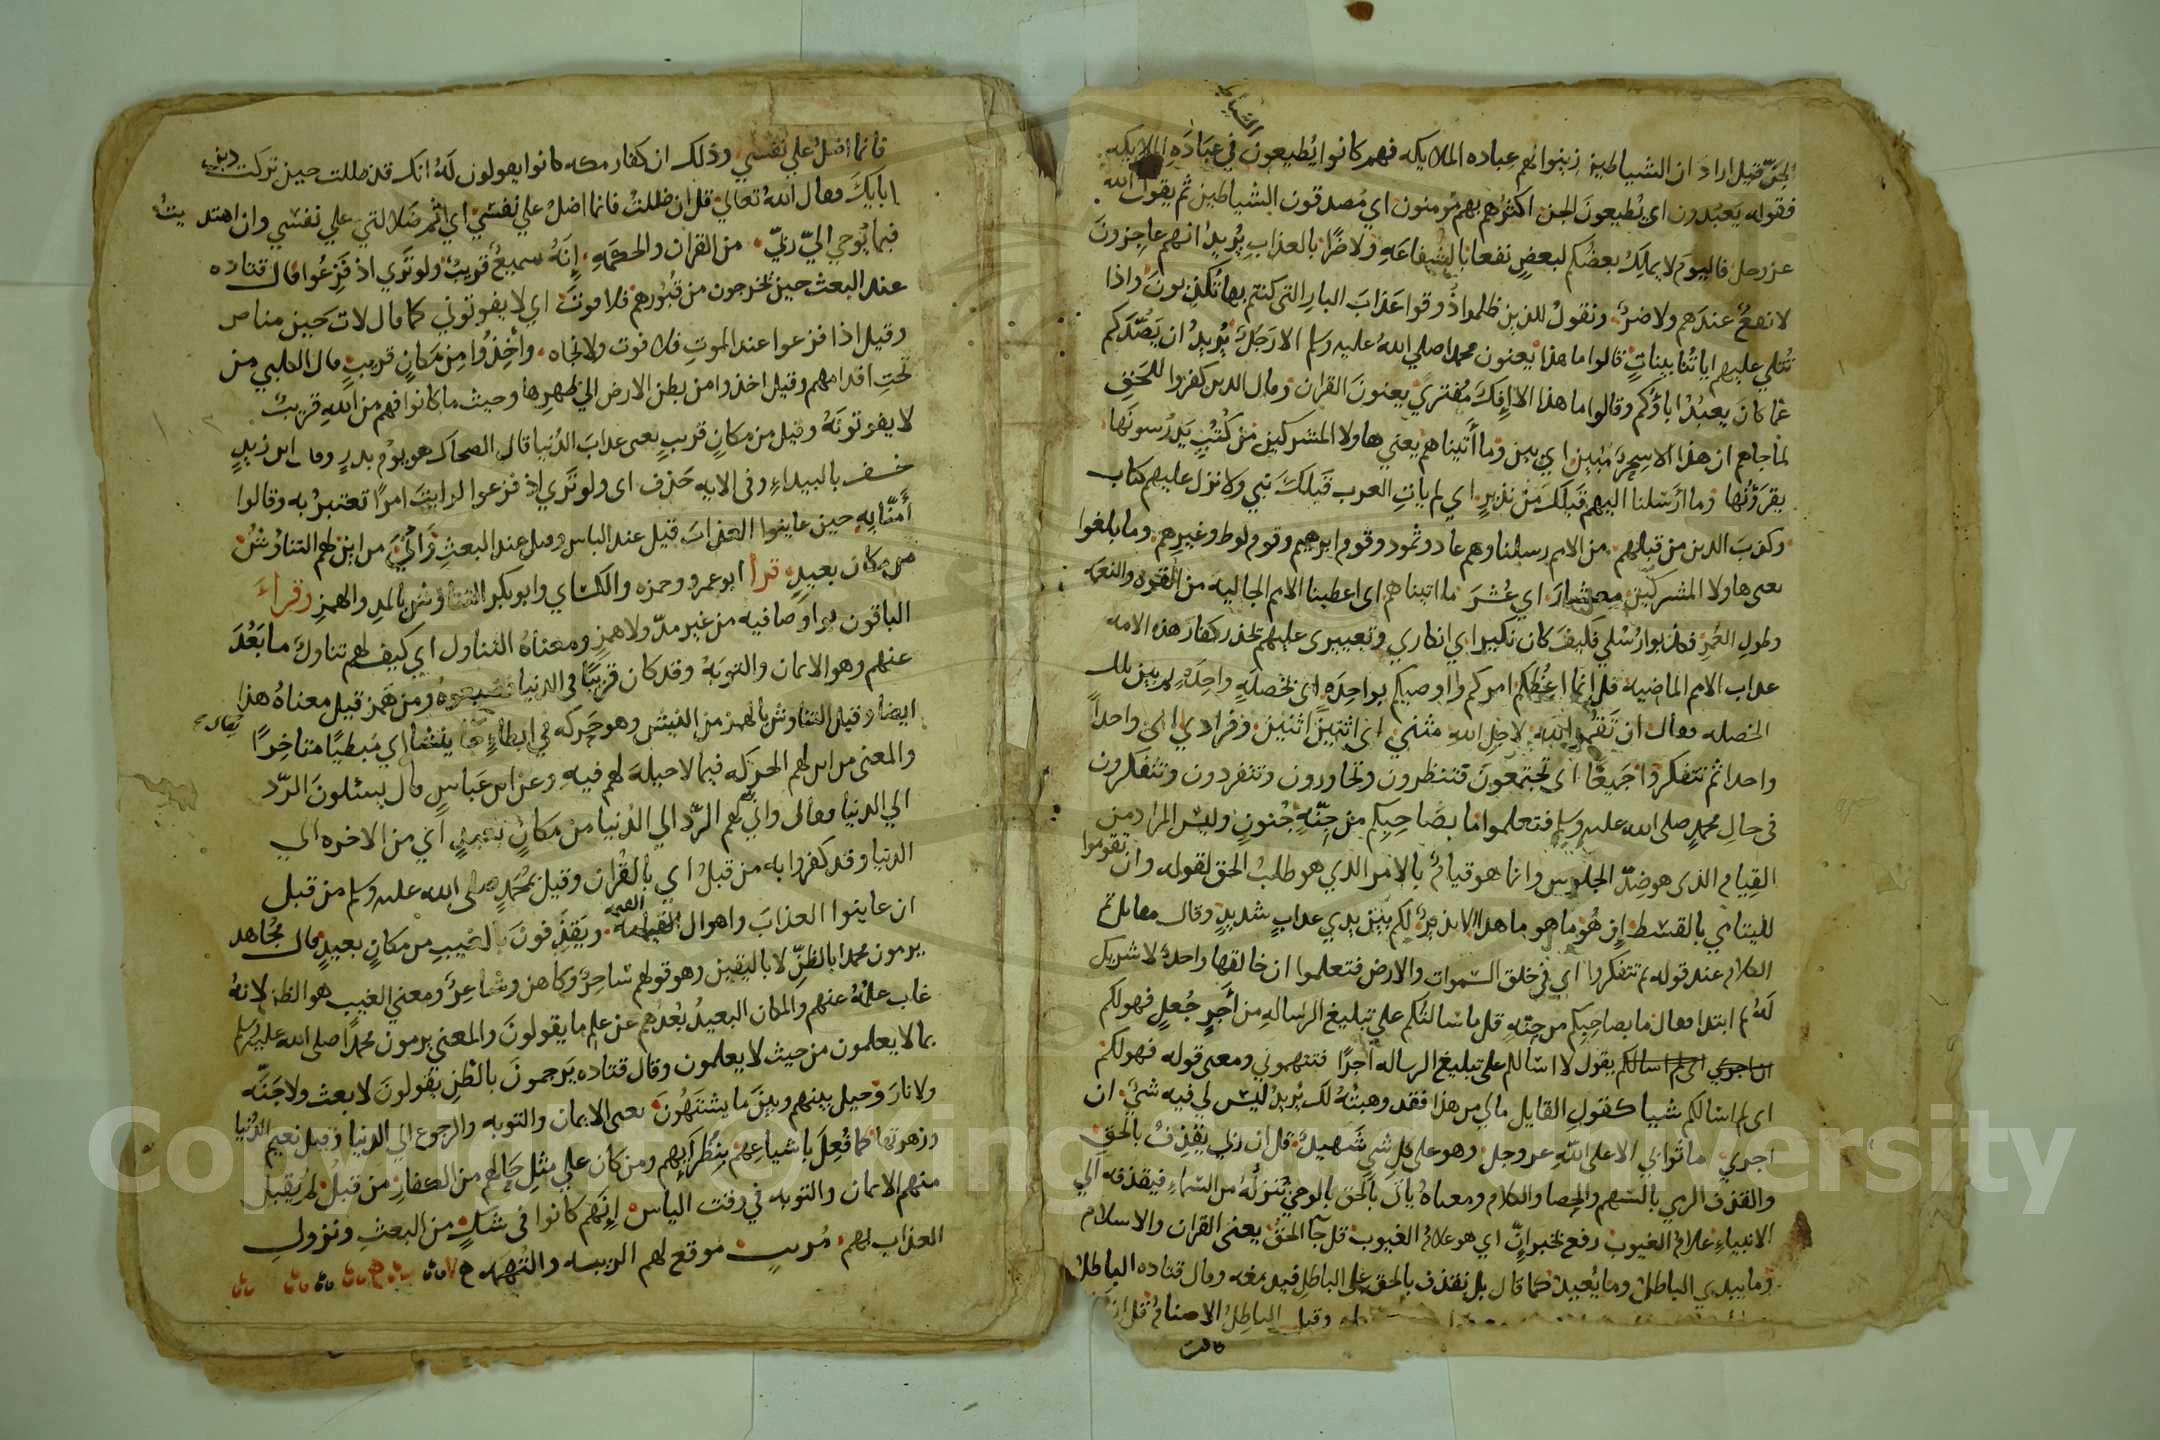 الشياط
الجن قيل اراد ان الشياطين زينوا لهم عباده الملايكه فهم كانوا يُطيعون في عبَادَه الملايكه
فقوله يَعبُدون اي يُطيعونَ الجن اكثرُهم بهم مُومنون اي مُصدقون الشياطين ثم يقول الله
عز وجل فاليومَ لا يملكُ بعضُكم لبعضٍ نفعا بالشفاعَهِ ولا ضرًا بالعذابِ يُريدُ انهم عاجزونَ
لا نفعٌ عندَهم ولا ضرٌ ونقولُ للذين ظلموا ذُوقوا عَذابَ النار التي كنتم بها تُكذبونَ واذا
تُتلي عليهم اياتُنا بيناتٍ قالوا ما هذا يعنون محمدا صلي الله عليه وسلم الا رَجلٌ يُريدُ ان يَصُدَّكم
عما كانَ يعبُدُ اباؤكم وقالوا ما هذا الا إفكٌ مُفتريً يعنونَ القران وقال الذين كفروا للحَقِ
لما جاهم ان هذا الا سِحرٌ مُبين اي بين وما أتَيناهم يعني هاولا المشركين من كُتُبٍ يَدرُسونَها
يقرَؤنها وما ارسَلنا اليهم قبلَكَ من نذيرٍ اي لم ياتِ العرب قبلكَ نبي ولا نزل عليهم كتاب
وكذبَ الدين من قبلهم من الامم رسلنا وهم عاد وثمود وقوم ابرهيم وقوم لوط وغيرهم وما بلغوا
يعني هاولا المشركين معشارَ اي عُشرَ ما اتيناهم اي اعطينا الامم الخاليه من القوه والنعمه
وطولِ العُمرِ فكذبوا رُسُلي فكيفَ كان نكير اي انكاري وتغييري عليهم يحذر كفار هذه الامه
عداب الامم الماضيه قل انما اعِظُكم امركم واوصيكم بواحِدَهٍ اي بخصلهٍ واحِدَهٍ ثم بين تلك
الخصله فقال ان تَقومُوا لله لاجل الله مثني اي اثنين اثنين وفرادي اي واحداً
واحدا ثم تتفكروا جَميعًا اي تجتمعونَ فتنظرون وتحاورون وتنفردون وتتفكرون
في حالِ محمدٍ صلي الله عليه وسلم فتعلموا ما بصَاحِبِكم من جِنّهٍ جُنونٍ وليس المراد من
القِيام الذي هو ضدّ الجلوس وانما هو قيامٌ بالامر الذي هو طلبُ الحق لقوله وان تقوموا
لليتامي بالقسط إن هُو ما هو ما هدا الا نذيرٌ لكم بين يدي عدابٍ شديدٍ وقال مقاتل تم
الكلام عند قوله ثم تتفكروا اي في خلق السموات والارض فتعلموا ان خالقها واحدٌ لا شريك
لَهُ ثم ابتدا فقال ما بصاحِبِكم من جِنّهٍ قل ما سَالتُكم علي تبليغ الرسالهِ من أجرٍ جُعلٍ فهو لكم
ان اجري اي لم اسالكم يقول لا اسالكم علي تبليغ الرساله اجرًا فتتهموني ومعني قوله فهو لكم
اي لم اسالكم شيا كقولِ القايل مالي من هذا فقد وهبتُهُ لك يُريدُ ليس لي فيه شيٌ ان
اجري ما ثوابي الا علي الله عز وجل وهو علي كل شيٍ شَهيدٌ قل ان ربي يَقذِفُ بالحقِ
والقذف الرمي بالسهم والحصا والكلام ومعناهُ ياتي بالحق بالوحي يُنزلُهُ من السماءِ فيقذفه الي
الانبياءِ علامُ الغيوب رفع بخبر إنّ اي هو علامُ الغيوب قل جآ الحقُ يعني القران والاسلام
وما يبدي الباطلُ وما يُعيدُ كما قال بل نقذف بالحق علي الباطلِ فيدمغه وقال قتاده الباطلُ
وقيل الباطلُ الاصنامُ قل ان
فانما اضلُ علي نَفسي وذلك ان كفار مكه كانوا يقولون لَهُ انك قد ضللت حين تركت دين
ابائِكَ فقال اللهُ تعالي قل ان ضللتُ فانما اضلُ علي نفسي اي اثم ضَلالتي علي نفسي وان اهتديتُ
فبما يُوحي اليّ ربيّ من القران والحكمه إنّهُ سميعٌ قريبٌ ولو تَري اذ فَزِعُوا قال قتاده
عند البعث حين يخرجون من قبُورهم فلا فوتَ اي لا يفوتوني كما قال لاتَ حَين مناص
وقيل اذا فزعوا عند الموتِ فلا فوت ولا نجاه وأخِذُوا مِن مَكانٍ قريبٍ قال الكلبي من
تحتِ اقدامهم وقيل اخذوا من بطن الارض الي ظهرها وحيث ما كانوا فهم من الله قريبٌ
لا يفوتونَهُ وقيل من مكانٍ قريبٍ يعني عدابَ الدُنيا قال الضحاك هو يَومُ بدرٍ وقال ابن زيدٍ
خسف بالبيداءِ وفي الايه حَذف اي ولو تَري اذ فزعوا لرايتَ امرًا تعتبرُ به وقالوا
أمنّا بِهِ حين عاينوا العذابَ قيل عند الباس وقيل عند البعثِ وَأنّي من اين لهم التناوُشُ
من مكان بعيدٍ قرأ ابو عمرو وحمزه والكسَاي وابو بكر التناؤش بالمدِ والهمز وقراءَ
الباقون بواو صافيه من غير مدّ ولا همزٍ ومعناهُ التناول اي كيف لهم تناولُ ما بَعُدَ
عنهم وهو الايمان والتوبَهُ وقد كان قريبًا في الدنيا فضيعوهُ ومن هَمز قيل معناهُ هذا
ايضا وقيل التناوش بالهمز من النيش وهو حَركه في ابطاءٍ يقال جا ينشا اي مُبطيًا متاخِرًا
والمعني من اين لهم الحركه فيما لا حيلهَ لهم فيهِ وعن ابن عَباسٍ قال يسئلونَ الرّد
الي الدنيا فقال وانّي لهم الرّد الي الدُنيا من مَكانٍ بَعيدٍ اي من الاخره الي
الدنيا وقد كفروا به من قبلُ اي بالقُران وقيل بمُحَمدٍ صلي الله عليه وسلم من قبل
ان عاينوا العذابَ واهوال القيامه ويَقذِفونَ بالغيبِ من مَكانٍ بعيدٍ قال مُجاهد
يرمون محمدا بالظنِّ لا باليَقين وهو قولهم سَاحِرٌ وكاهنٌ وشَاعِرٌ ومعني الغيبِ هو الظن لانهُ
غاب علمُهُ عنهم والمكان البعيدُ بُعدُهم عن علم ما يقولونَ والمعني يرمون محمدًا صلي الله عليه وسلم
بما لا يعلمون من حيث لا يعلمون وقال قتاده يَرجمونَ بالظنِ يقولونَ لا بعث ولا جَنّه
ولا نارَ وَحيل بينهم وبينَ ما يشتَهُونَ يعني الايمان والتوبه والرجوع الي الدنيا وقيل نعيم الدُنيا
وزهرتها كما فُعِلَ باشياعِهم بِنُظَرَايِهم ومن كان علي مثلِ حَالِهم من الكفارِ من قبلُ لم يُقبل
منهم الايمان والتوبه في وقت الياس إنّهم كانوا في شكٍ من البعثِ ونزولِ
العذاب بهم مُريبٍ موقع لهم الريبه والتُهمَه
Copyright © King Saud University